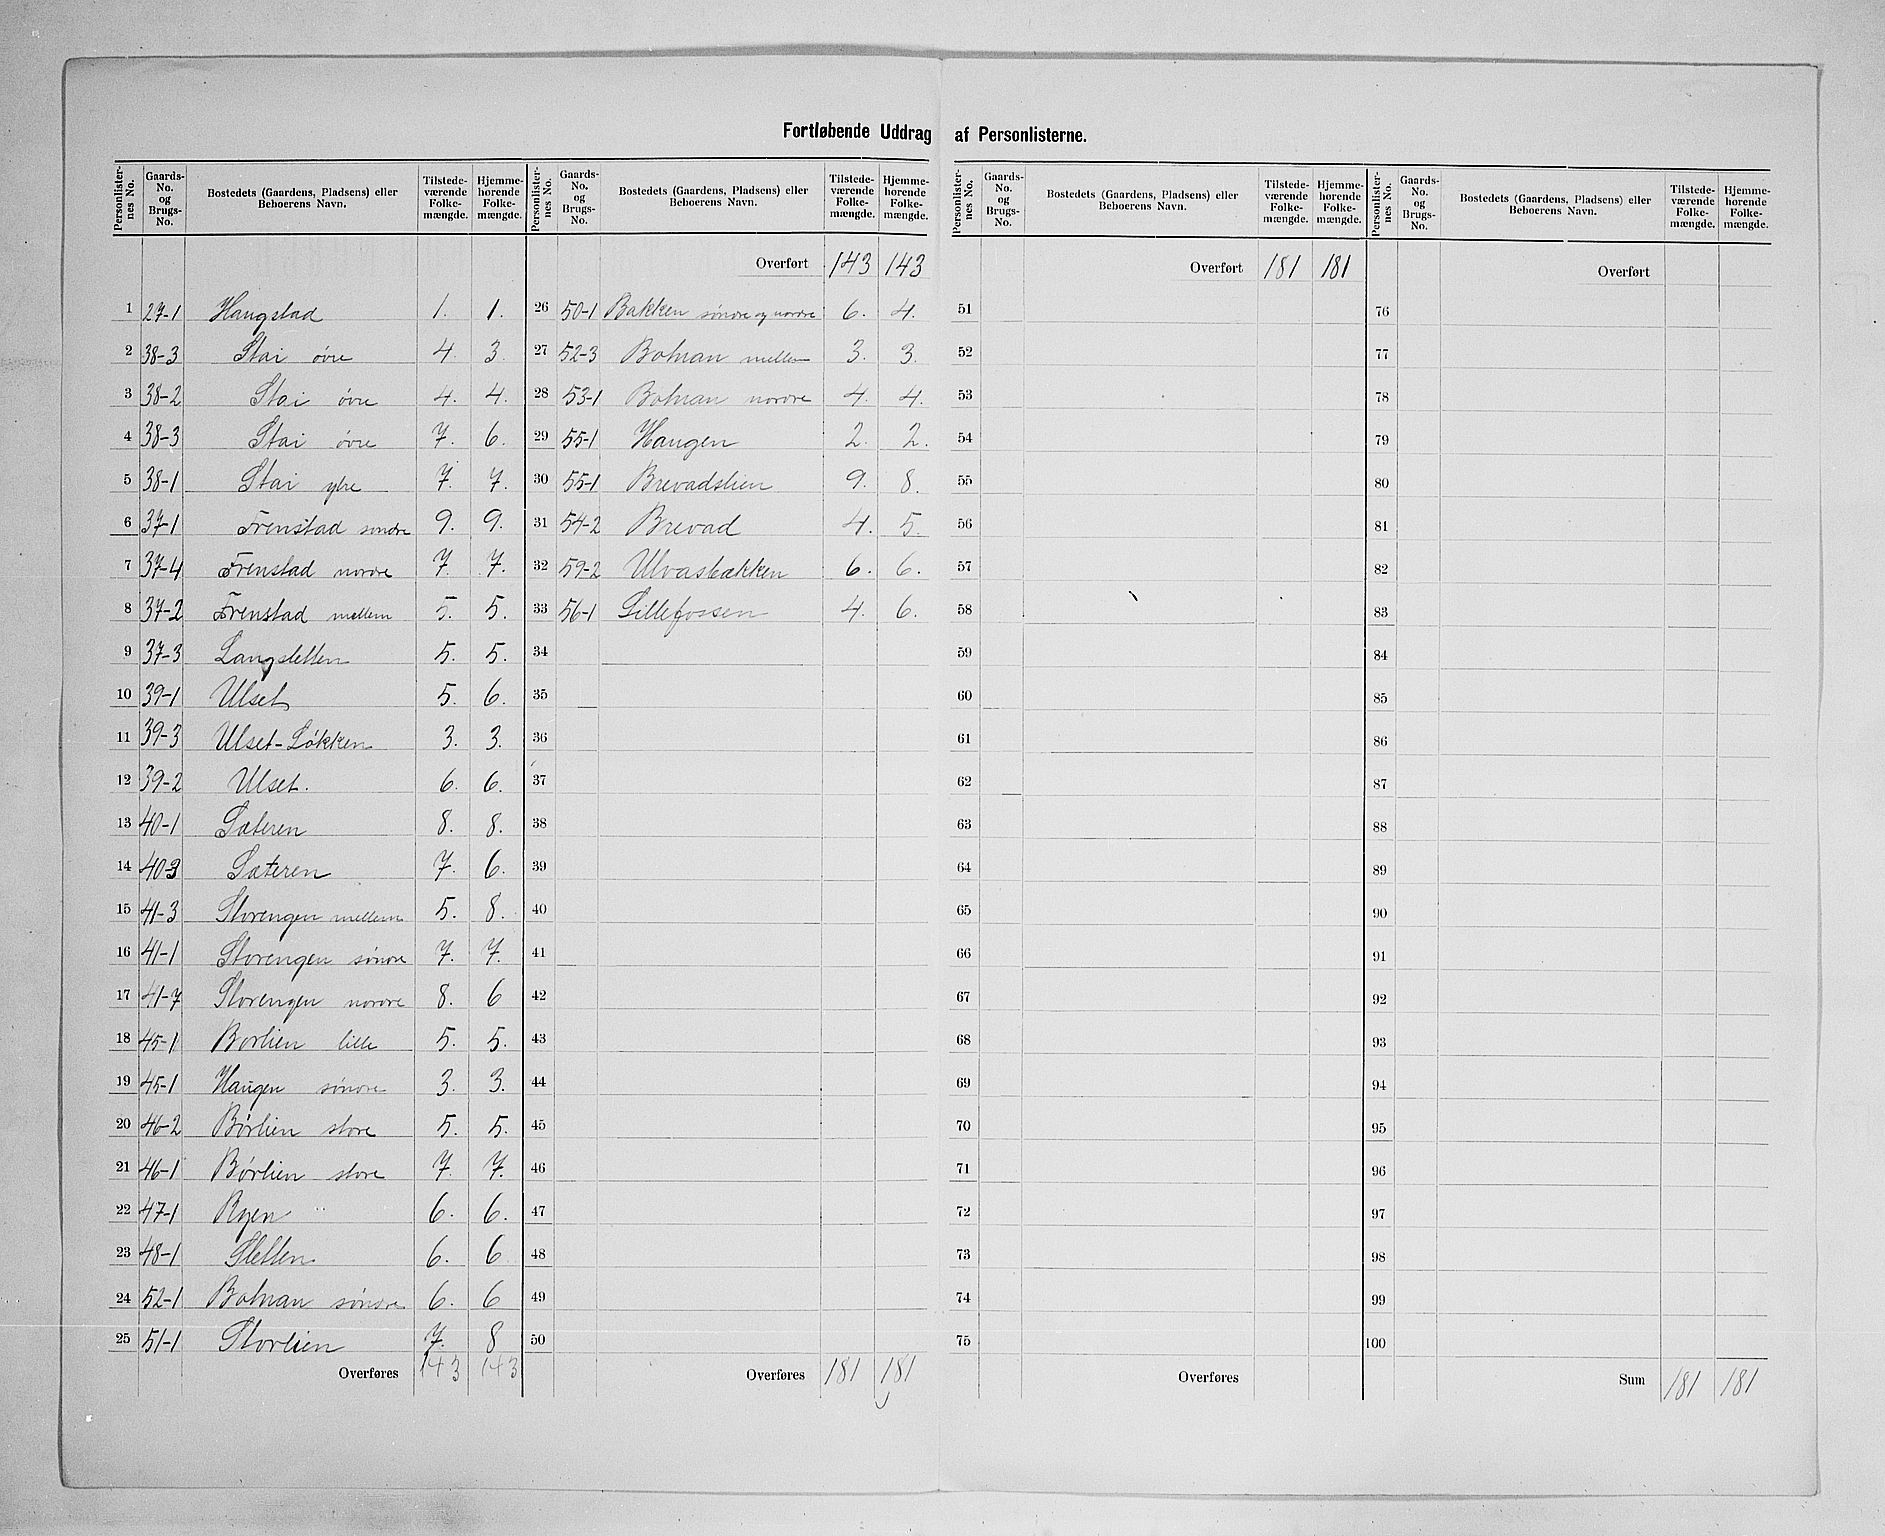 Fortløbende Uddrag af Personlisterne.
Personlister-nes No. Gaards-No. og Brugs-No. Bostedets (Gaardens, Pladsens) eller Beboerens Navn. Tilstede-værende Folke-mængde. Hjemme-hørende Folke-mængde.
1 27-1 Haugstad 1. 1.
2 38-3 Stai øvre 4. 3.
3 38-2 Stai øvre 4. 4.
4 38-3 Stai øvre 7. 6.
5 38-1 Stai ytre 7. 7.
6 37-1 Trenstad søndre 9. 9.
7 37-4 Trenstad nordre 7. 7.
8 37-2 Trenstad mellem 5. 5.
9 37-3 Langsletten 5. 5.
10 39-1 Ulset 5. 6.
11 39-3 Ulset-Løkken 3. 3.
12 39-2 Ulset. 6. 6.
13 40-1 Sæteren 8. 8.
14 40-3 Sæteren 7. 6.
15 41-3 Storengen mellem 5. 8.
16 41-1 Storengen søndre 7. 7.
17 41-7 Storengen nordre 8. 6
18 45-1 Børlien lille 5. 5.
19 45-1 Haugen søndre 3. 3.
20 46-2 Børlien store 5. 5.
21 46-1 Børlien store 7. 7.
22 47-1 Ryen 6. 6.
23 48-1 Sletten 6. 6
24 52-1 Bolman søndre 6. 6
25 51-1 Storlien 7. 8
Overføres 143 143
Personlister-nes No. Gaards-No. og Brugs-No. Bostedets (Gaardens, Pladsens) eller Beboerens Navn. Tilstede-værende Folke-mængde. Hjemme-hørende Folke-mængde.
Overført 143 143
26 50-1 Bakken søndre og nordre 6. 4.
27 52-3 Bolman mellem 3. 3.
28 53-1 Bolman nordre 4. 4.
29 55-1 Haugen 2. 2.
30 55-1 Brevadslien 9. 8.
31 54-2 Brevad 4. 5.
32 59-2 Ulvasbækken 6. 6.
33 56-1 Lillefossen 4. 6.
34
35
36
37
38
39
40
41
42
43
44
45
46
47
48
49
50
Overføres 181 181
Personlister-nes No. Gaards-No. og Brugs-No. Bostedets (Gaardens, Pladsens) eller Beboerens Navn. Tilstede-værende Folke-mængde. Hjemme-hørende Folke-mængde.
Overført 181 181
51
52
53
54
55
56
57
58
59
60
61
62
63
64
65
66
67
68
69
70
71
72
73
74
75
Overføres
Personlister-nes No. Gaards-No. og Brugs-No. Bostedets (Gaardens, Pladsens) eller Beboerens Navn. Tilstede-værende Folke-mængde. Hjemme-hørende Folke-mængde.
Overført
76
77
78
79
80
81
82
83
84
85
86
87
88
89
90
91
92
93
94
95
96
97
98
99
100
Sum 181 181